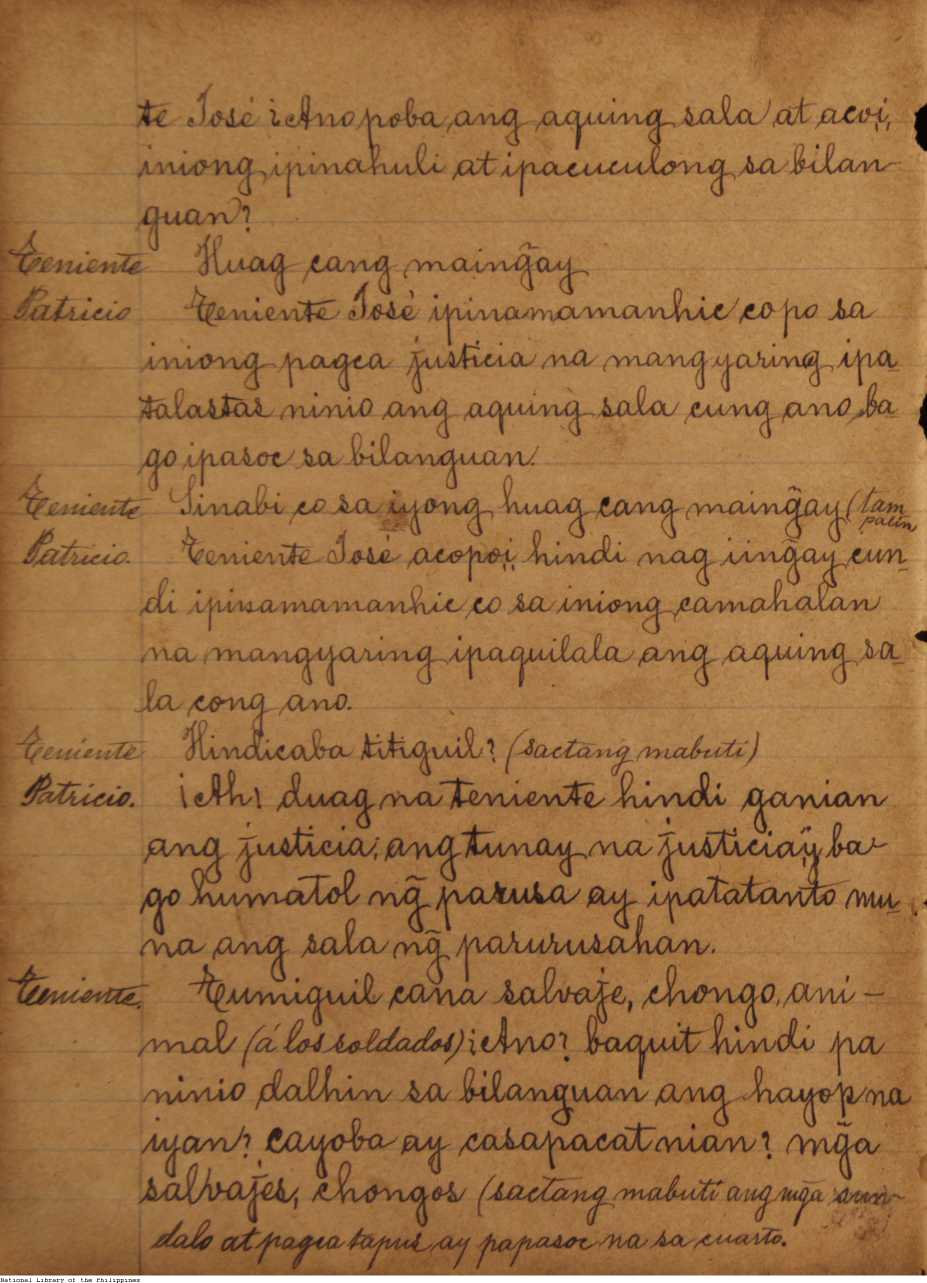 te José ¿Ano poba ang aquing sala at acoi,
iniong ipinahuli at ipacuculong sa bilan-
guan?
Teniente Huag cang maing̃ay
Patricio Teniente José ipinamamanhic co po sa
iniong pagca justicia na mangyaring ipa-
talastas ninio ang aquing sala cung ano, ba-
go ipasoc sa bilanguan.
Teniente Sinabi co sa iyong huag cang maing̃ay (tam
palin
Patricio. Teniente José acopoi hindi nag iing̃ay cun-
di ipinamamanhic co sa iniong camahalan
na mangyaring ipaquilala ang aquing sa-
la cong ano.
Teniente Hindicaba titiguil? (sactang mabuti)
Patricio. ¡Ah! duag na teniente hindi ganian
ang justicia; ang tunay na justiciaÿ ba-
go humatol ng̃ parusa ay ipatatanto mu-
na ang sala ng̃ parurusahan.
Teniente. Tumiguil cana salvaje, chongo, ani-
mal (á los soldados) ¿Ano? baquit hindi pa
ninio dalhin sa bilanguan ang hayop na
iyan? cayoba ay casapacat nian? mg̃a
salvajes, chongos (sactang mabuti ang mg̃a sun-
dalo at pagca tapus ay papasoc na sa cuarto.
National Library of the Philippines